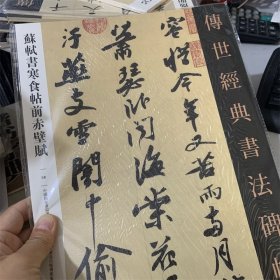 傳世經典書法碑
容惜今年又苦雨兩月
蕭瑟卧聞海棠花
汙燕支雪闇中偷
蘇軾書寒食帖前赤壁賦